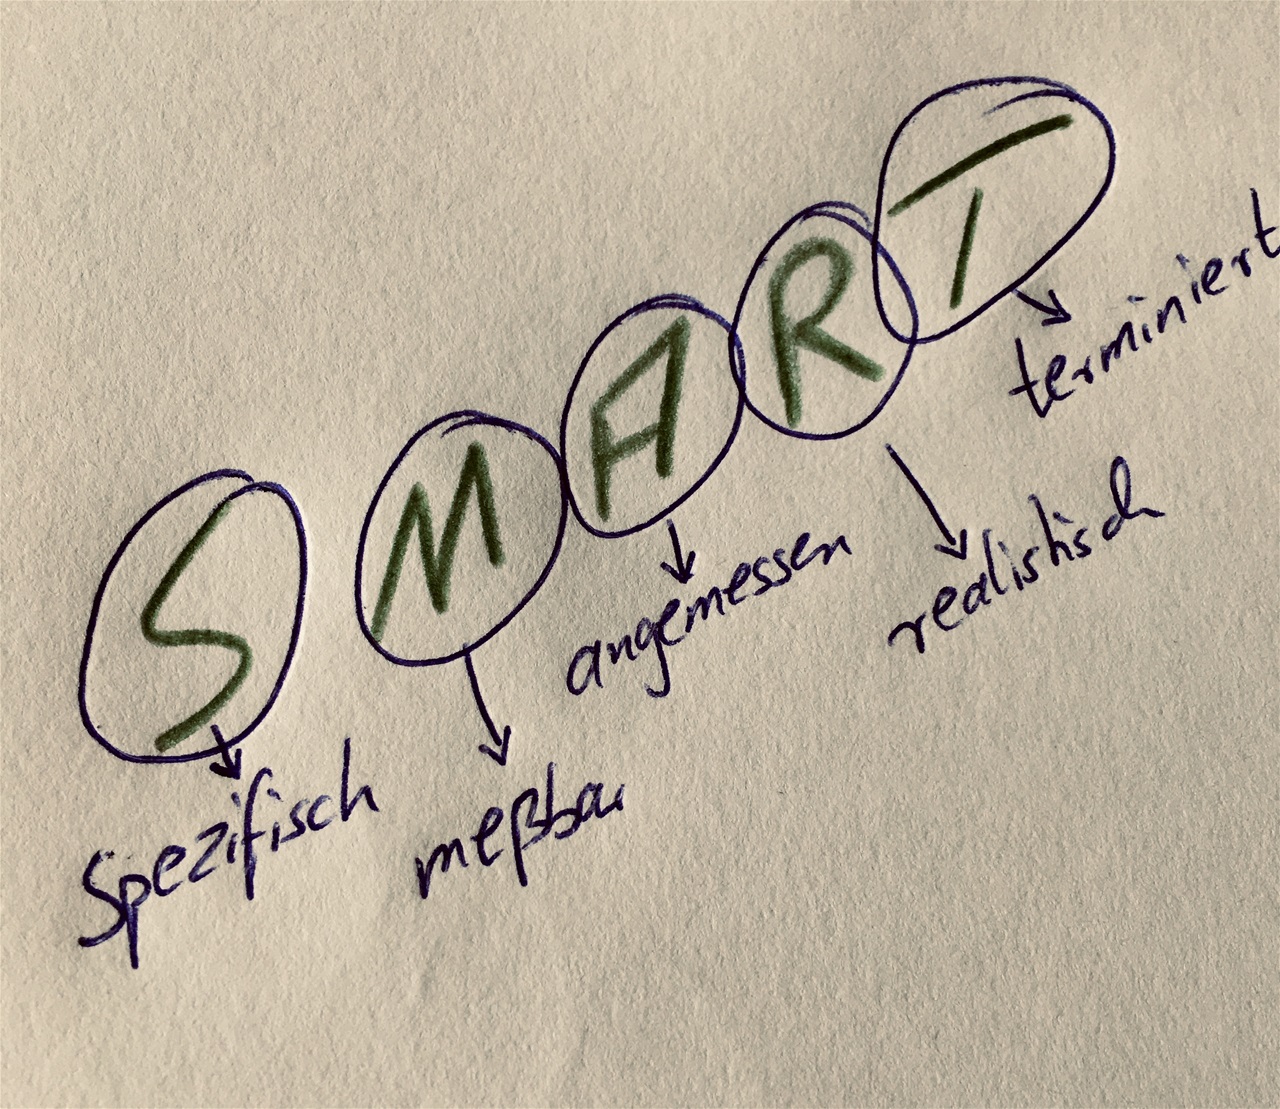 SMART
Spezifisch
meßbar
angemessen
realistisch
terminiert